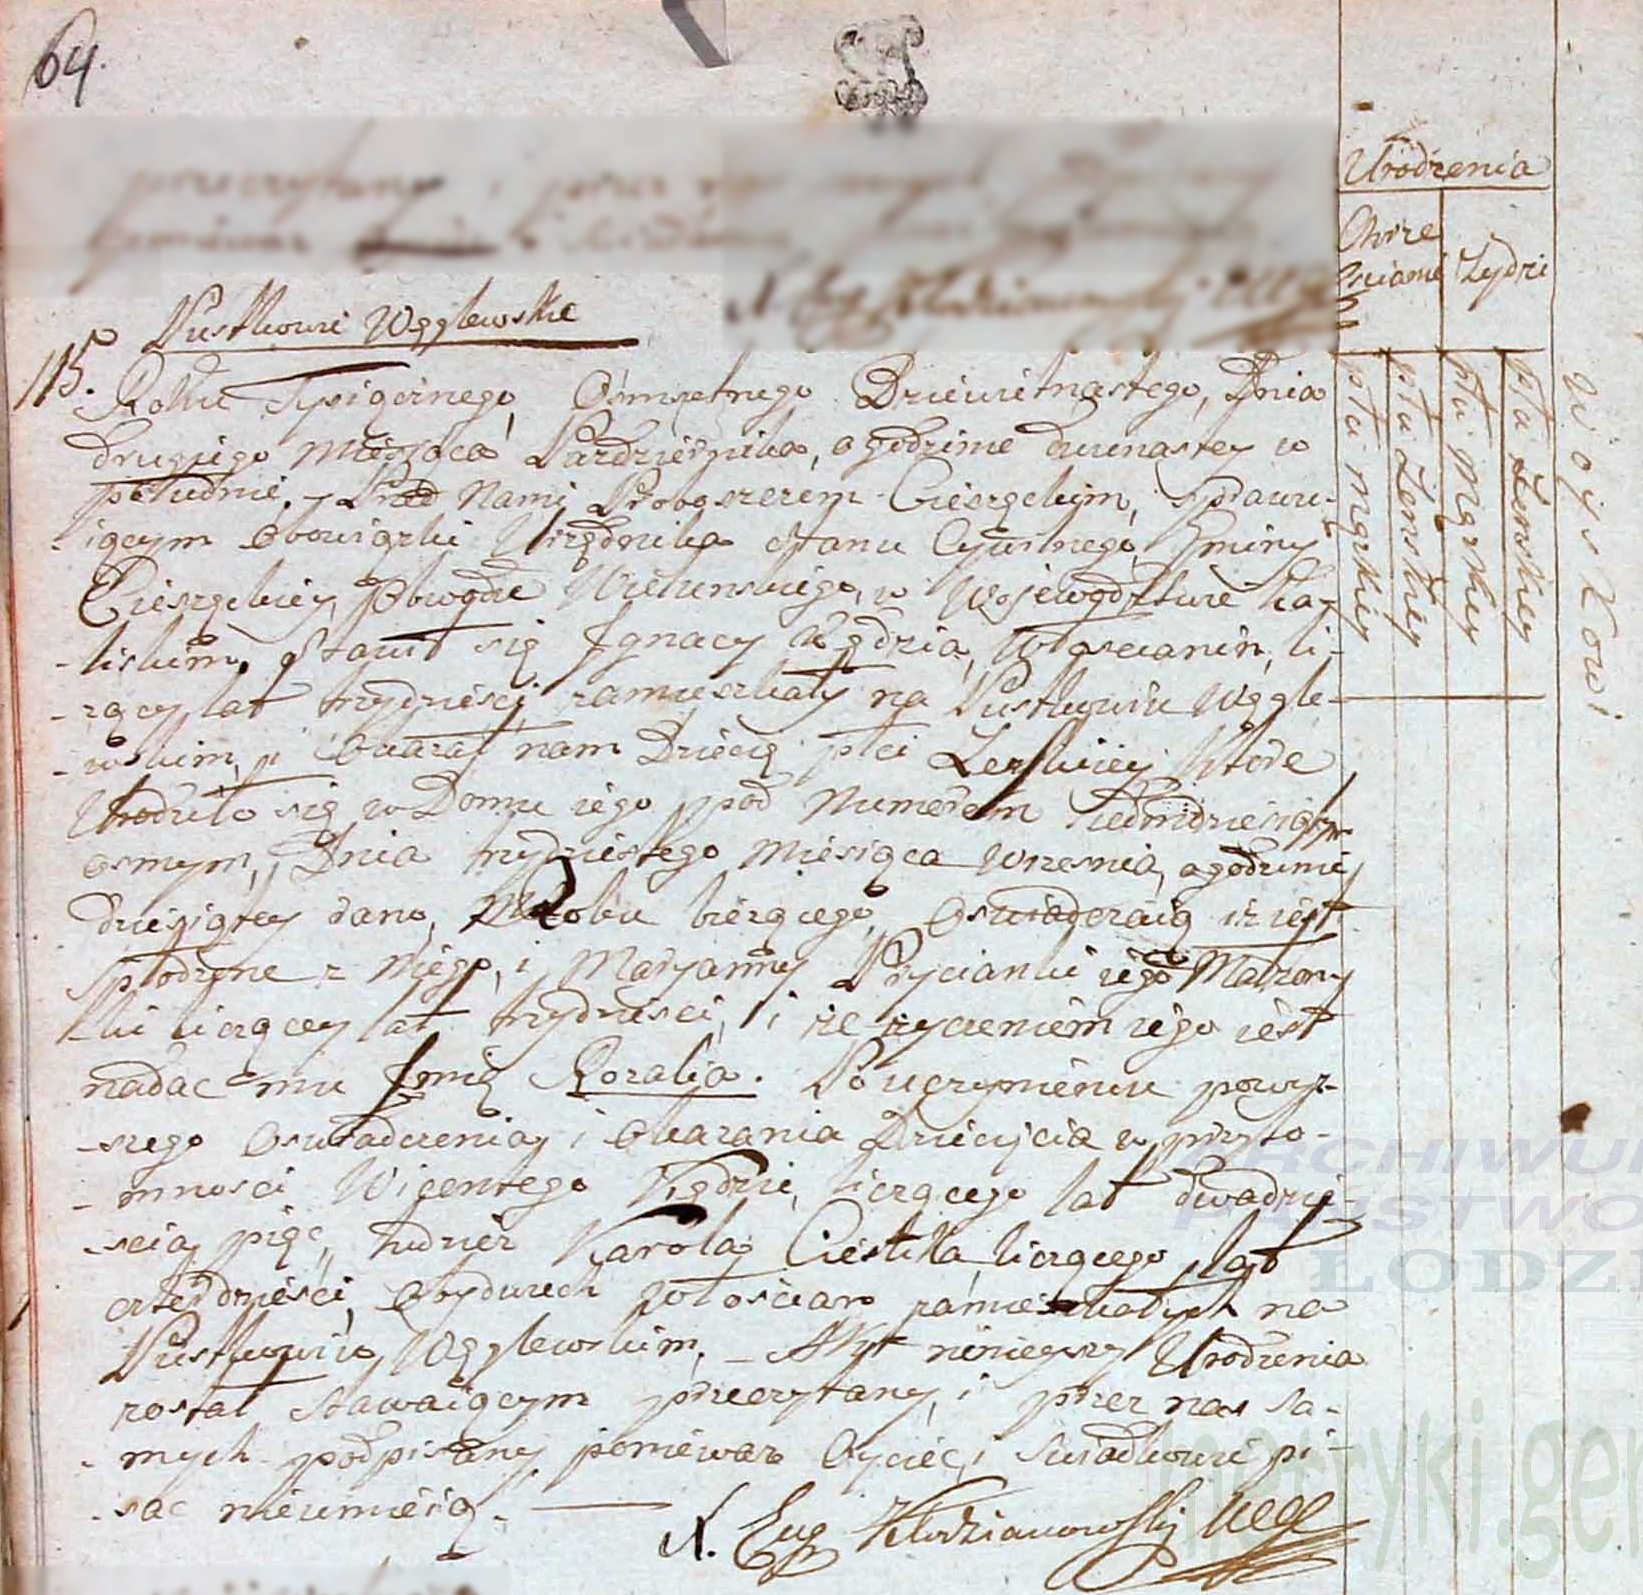 64.
Urodzenia
Chrze
sciani Zydzi
płci męzkiey
płci Zenskiey
płci Męzkiey
płci Zenskiey
Wojskowi
Pustkowie Węglewskie
115.
Roku Tysiącnego, Osmsetnego Dziewietnastego, Dnia
drugiego Miesiąca Pazdziernika, o godzinie dwunastey w
południe, Przed Nami Proboszczem Cieszęckim, sprawu-
-iącym obowiązki Urzędnika stanu Cywilnego, Gminy
Cieszęckiey, Powodu Wielunskiego, w Wojewodztwie Ka-
-liskim, Stawił się Ignacy Kędzia, Włascianin, li-
-zący lat trzydziesci zamieszkały na Pustkowiu Węgle-
-wskim, i okazał nam Dziecię płci Zenskiey, które
Urodziło się w Domu iego pod Numerem siedmdziesiątym
osmym, Dnia trzydziestego Miesiąca Wrzesnia, o godzinie
dziesiątey rano, Roku bieżącego, Oswiadczaiąc iż iest
spłodzone z niego, i Maryanny Prycianki iego Małzony
-ki liczącey lat trzydziesci, i że życzeniem iego iest
nadac mu Jmię Rozalia. Po uczynieniu powyż-
-szego oswiadczenia, i okazania Dziecięcia w przyto-
-mnosci Wicentego Kędzie, liczącego lat dwadzie-
-scia pięc, tudzież Karola Cieslika, liczącego lat
czterdziesci, obydwuch włoscian zamieszkałych na
Pustkowiu Węglewskim, - Akt ninieyszy Urodzenia
został stawaiącym przeczytany, i przez nas sa-
-mych podpisany poniewaz Oyciec, i swiadkowie pi-
-sac nieumieią.
X. Eug Kłodzianowski
ARCHIWUM
PAŃSTWO
ŁODZI
metryki.gen